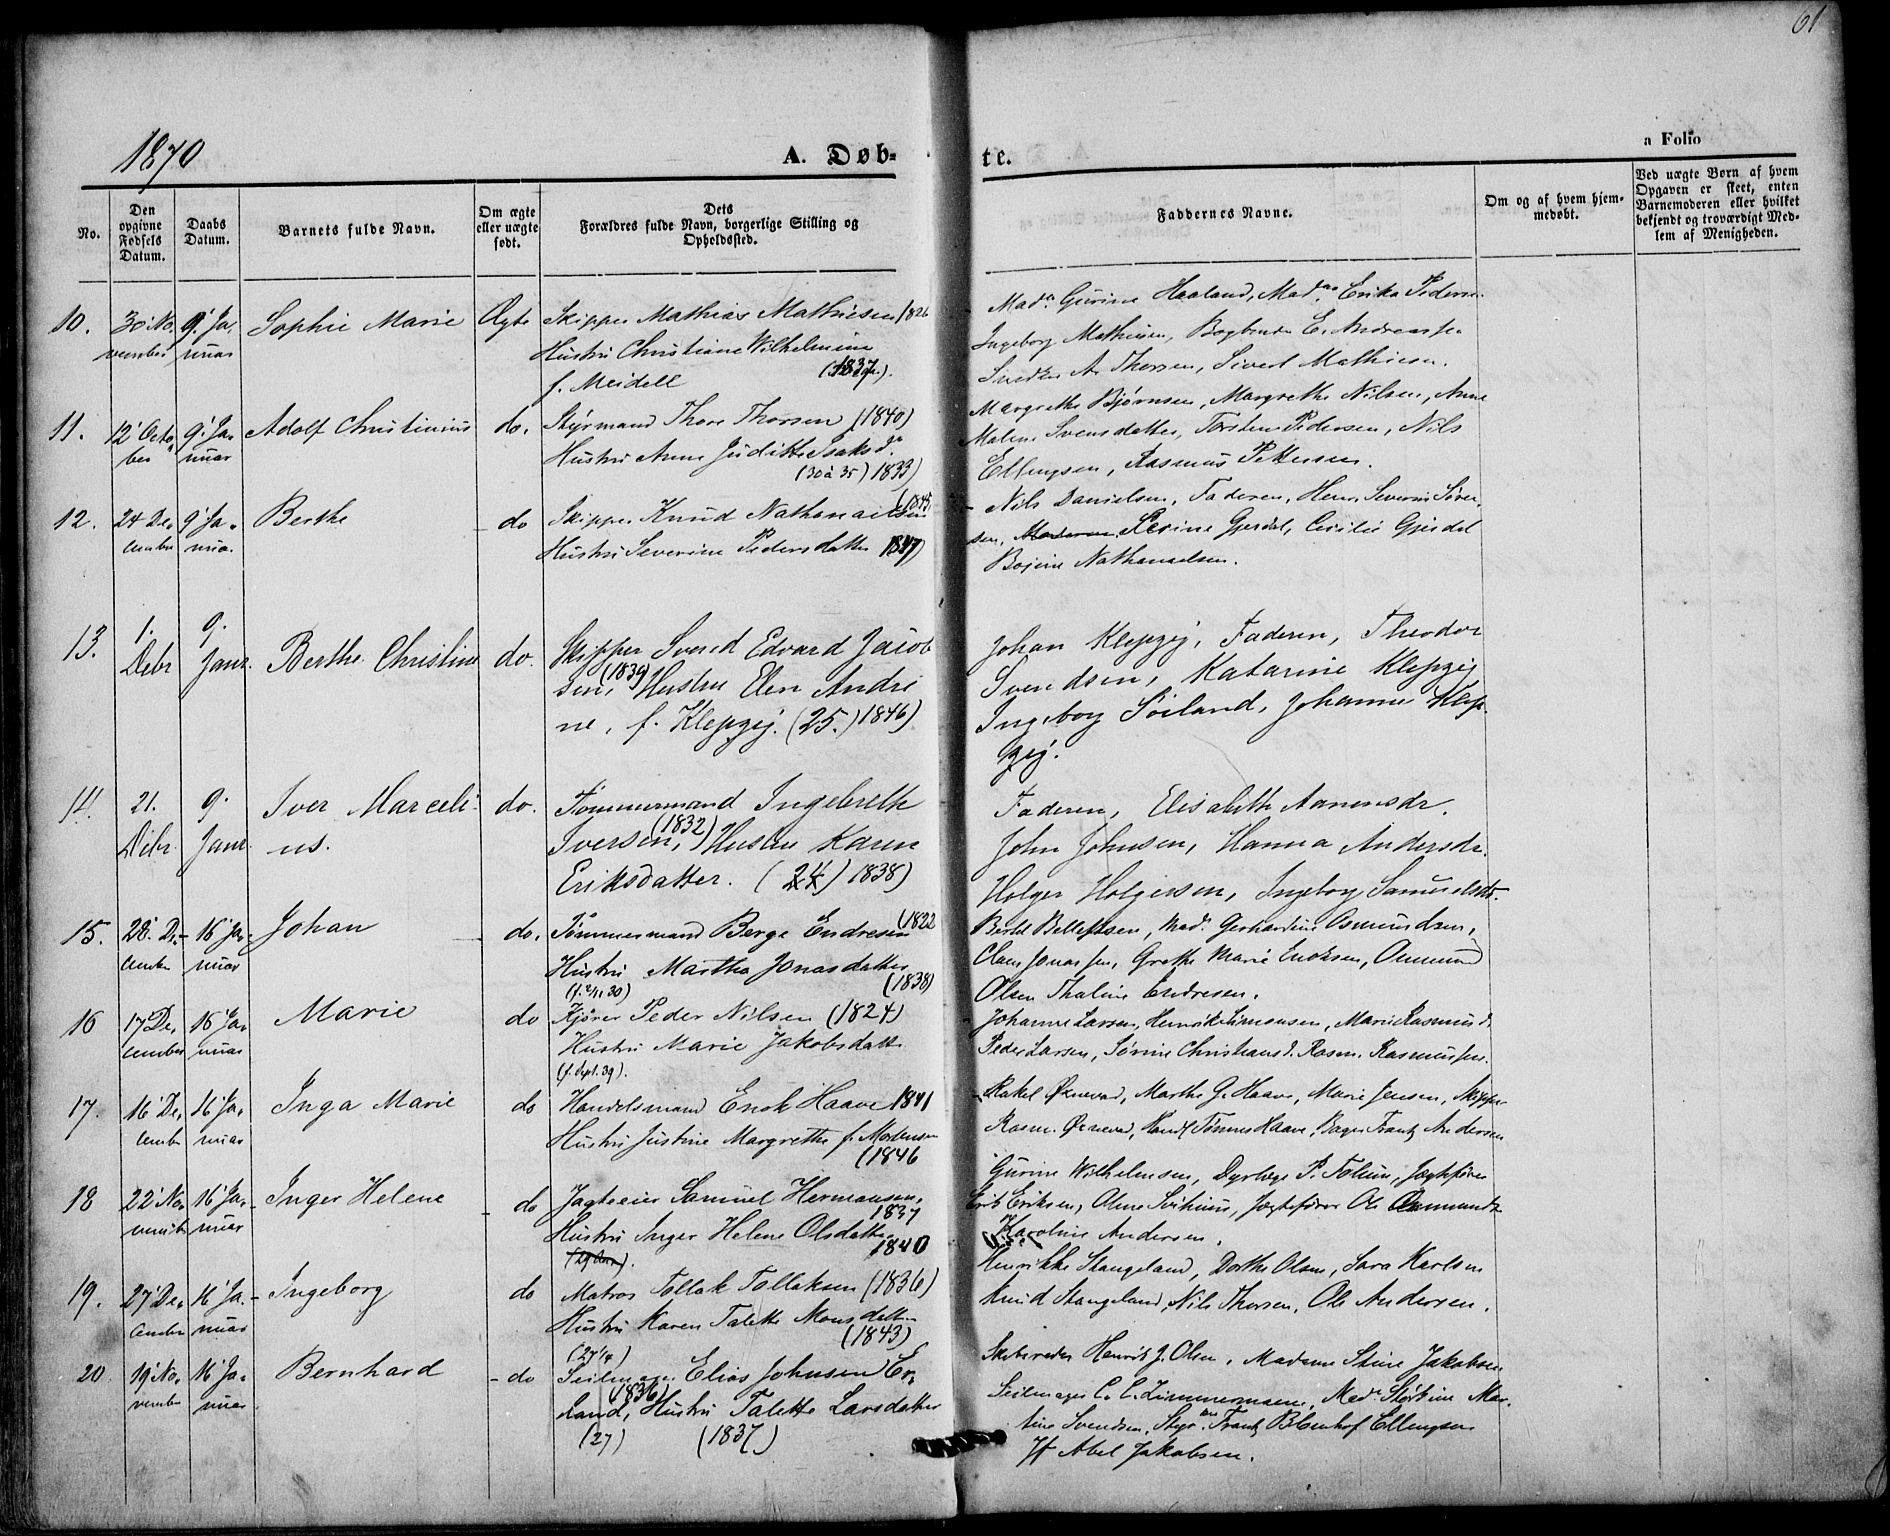 61
1870
A. Døb-
te.
a Folio
No.
Den opgivne Fødsels Datum.
Daabs Datum.
Barnets fulde Navn.
Om ægte eller uægte født.
Dets Forældres fulde Navn, borgerlige Stilling og Opholdssted.
Faddernes Navne.
Om og af hvem hjemmedøbt.
Ved uægte Børn af hvem Opgaven er skeet, enten Barnemoderen eller hvilket bekjendt og troværdigt Medlem af Menigheden.
10. 30' No- 9' Ja- Sophie Marie Ægte Skipper Mathias Mathiesen 1826
vember nuar Hustru Christiane Wilhelmine
f. Meidell 1837
Mad. Gurine Haaland, Mad. Erika Peders.
Ingeborg Mathisen, E. Andreassen
A. Thorsen, Sivert Mathiesen.
11. 12' Octo- 9' Ja- Adolf Christinius do. Styrmand Thore Thorsen (1840)
ber nuar Hustru Anne Juditte Isaksd.
(30 à 35) 1833)
Margrethe Bjørnsen, Margrethe Nilsen, Anne
Malene Svensdatter, Torsten Pedersen, Nils
Ellingsen, Rasmus Pettersen.
12. 24 De- 9' Ja- Berthe do Skipper Knud Nathanaelsen (1845
cember nua. Hustru Severine Pedersdatter 1847)
Nils Danielsen, Faderen, Henr. Severin Sører-
sen, Serine Gjerdal, Cecilie Gjerdal
Bojine Nathanaelsen.
13. 1. 9. Berthe Christine do. Skipper Svend Edvard Jacob
Debr Janr. sen, (1839) Hustru Elen Andri
ne, f. Klepzig. (25.) 1846)
Johan Klepzig, Faderen, Theodor
Svendsen, Katarine Klepzig
Ingeborg Soiland, Johanne Klep-
zig.
14. 21. 9. Iver Marceli- do. Tømmermand Ingebreth
Debr. Janr. us. Iversen, (1832) Hustru Karen
Eriksdatter. (24) 1838)
Faderen, Elisabeth Aanensdr.
John Johnsen, Hanna Andersdr.
Holger Holgersen, Ingeborg Samuelsdr.
15. 28. De- 16' Ja- Johan do. Tømmermand Berge Endresen (1822
cember nuar Hustru Martha Jonasdatter
(f. 2/11 30) (1838)
Bertel Bellesen, Mad. Gerhardine Osmundsen,
Claus Jonassen, Grethe Marie Enoksen, Osmund
Olsen Thaline Endresen.
16 17 De- 16 Ja- Marie do Kjører Peder Nilsen (1824)
cember nuar Hustru Marie Jakobsdatt.
(f. Sept. 39).
Johanne Larsen, Henrik Simonsen, Marie Rasmusd.
Peder Larsen, Sørine Christiansd. Rasm. Rasmussen.
17. 16' De- 16' Ja- Inga Marie do Handelsmand Enok Haave 1841
cember nuar Hustru Justine Margrethe f. Mortensen
(1846
Rakel Ørnevad, Marthe G. Haave, Marie Jensen, Skipper
Rasm. Ørnevad, Handl. Tønnes Haave, Bager Frantz Andersen
18 22' No- 16' Ja- Inger Helene do Jagteeier Samuel Hermansen,
vember nuar 1837
Hustru Inger Helene Olsdatter
1840
Gurine Wilhelmsen, Dyrlæge P. Jagtefører
Erik Eriksen, Jagtefører Ole Osmunds.
Karoline Andersen.
19. 27' De- 16' Ja- Ingeborg do Matros Tollak Tollaksen (1836)
cember nuar Hustru Karen Talette Monsdatter
(27 1/4) (1843)
Henrikke Stangeland, Dorthe Olsen, Sara Karlsen
Knud Stangeland, Nils Thorsen, Ole Andersen.
20 19' No- 16' Ja- Bernhard do Seilmager Elias Johnsen Er-
vember nuar land, (1836) Hustru Talette Larsdatter
(27) (1837)
Skibsreder Henrik J. Olsen, Madame Stine Jakobsen
Seilmager C. C. Zimmermann, Mad. Mar-
tine Svendsen, Styr. Frantz Ellingsen
Abel Jakobsen.